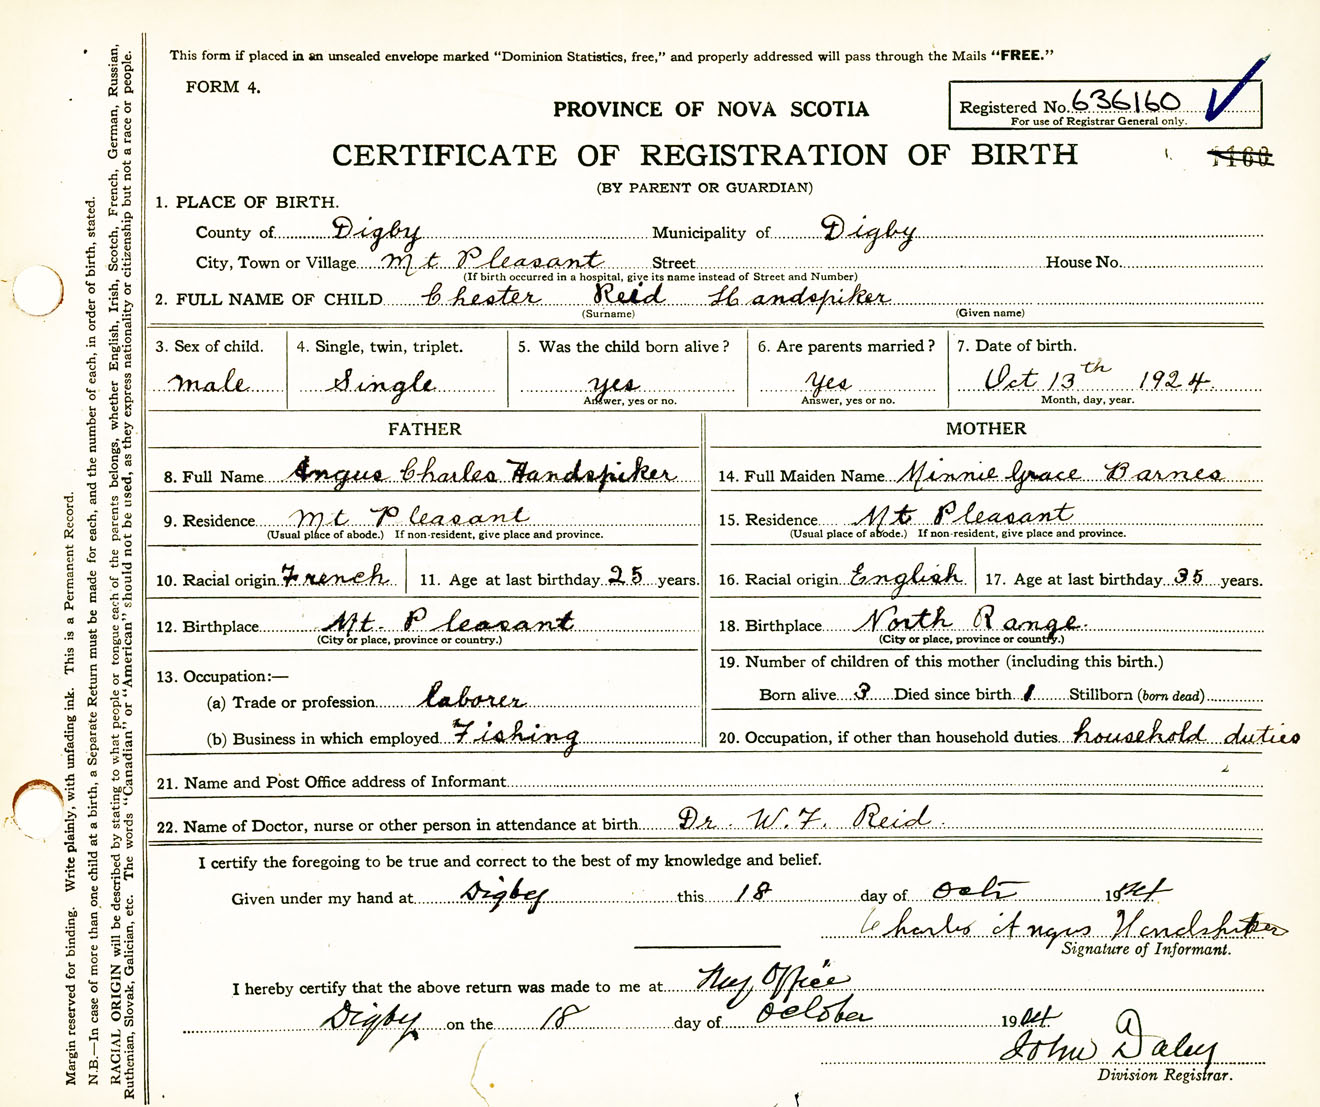 This form if placed in an unsealed envelope marked "Dominion Statistics, free," and properly addressed will pass through the Mails "FREE."
FORM 4.
PROVINCE OF NOVA SCOTIA
Registered No. 636160
For use of Registrar General only.
CERTIFICATE OF REGISTRATION OF BIRTH
(BY PARENT OR GUARDIAN)
1. PLACE OF BIRTH.
County of Digby Municipality of Digby
City, Town or Village Mt Pleasant Street House No.
(If birth occurred in a hospital, give its name instead of Street and Number)
2. FULL NAME OF CHILD Chester Reid Handspiker
(Surname) (Given name)
3. Sex of child. 4. Single, twin, triplet. 5. Was the child born alive? 6. Are parents married? 7. Date of birth.
Male Single yes Yes Oct 13th 1924
Answer, yes or no. Answer, yes or no. Month, day, year.
FATHER MOTHER
8. Full Name Angus Charles Handspiker 14. Full Maiden Name Minnie Grace Barnes
9. Residence Mt Pleasant 15. Residence Mt Pleasant
(Usual place of abode.) If non-resident, give place and province. (Usual place of abode.) If non-resident, give place and province.
10. Racial origin French 11. Age at last birthday 25 years. 16. Racial origin English 17. Age at last birthday 35 years.
12. Birthplace Mt. Pleasant 18. Birthplace North Range.
(City or place, province or country.) (City or place, province or country.)
13. Occupation:— 19. Number of children of this mother (including this birth.)
(a) Trade or profession laborer Born alive 3 Died since birth 1 Stillborn (born dead)
(b) Business in which employed Fishing 20. Occupation, if other than household duties household duties
21. Name and Post Office address of Informant
22. Name of Doctor, nurse or other person in attendance at birth Dr. W. F. Reid.
I certify the foregoing to be true and correct to the best of my knowledge and belief.
Given under my hand at Digby this 18 day of Oct 1924
Charles Angus Handspiker
Signature of Informant.
I hereby certify that the above return was made to me at My Office
Digby on the 18 day of October 1924
John Daley
Division Registrar.
Margin reserved for binding. Write plainly, with unfading ink. This is a Permanent Record.
N.B.—In case of more than one child at a birth, a Separate Return must be made for each, and the number of each, in order of birth, stated.
RACIAL ORIGIN will be described by stating to what people or tongue each of the parents belongs, whether English, Irish, Scotch, French, German, Russian,
Ruthenian, Slovak, Galician, etc. The words "Canadian" or "American" should not be used, as they express nationality or citizenship but not a race or people.